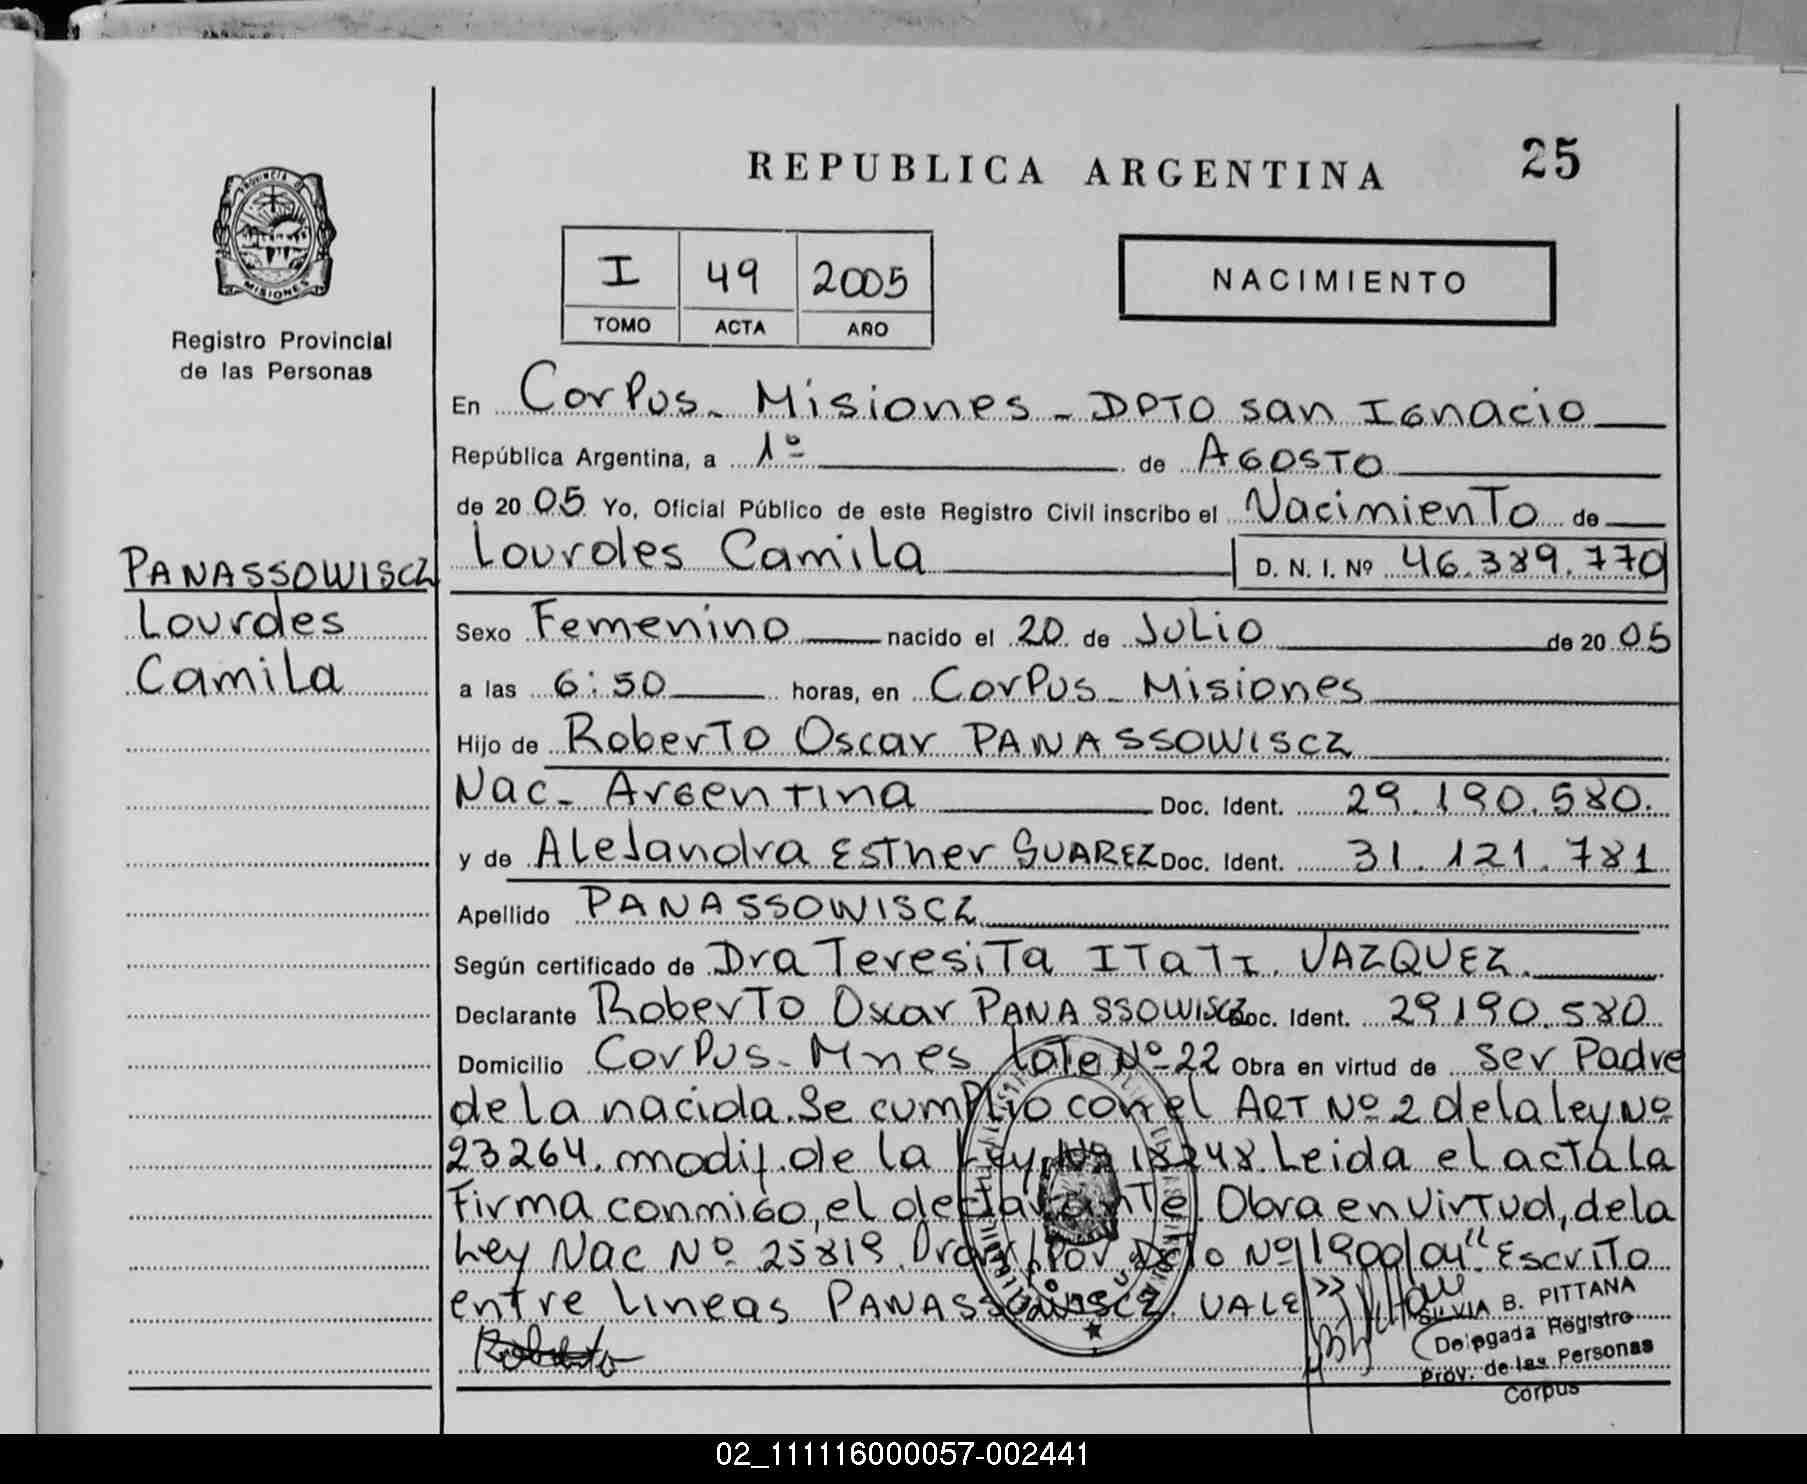 REPUBLICA ARGENTINA 25
PROVINCIA DE
MISIONES
Registro Provincial
de las Personas
I 49 2005
TOMO ACTA AÑO
NACIMIENTO
En Corpus - Misiones - DPTO San Ignacio
República Argentina, a 1º de AGOSTO
de 2005 Yo, Oficial Público de este Registro Civil inscribo el Nacimiento de
Lourdes Camila D. N. I. Nº 46.389.770
PANASSOWISCZ
Lourdes
Camila
Sexo Femenino nacido el 20 de Julio de 2005
a las 6:50 horas, en Corpus - Misiones
Hijo de Roberto Oscar PANASSOWISCZ
Nac - Argentina Doc. Ident. 29.190.580.
y de Alejandra Esther SUAREZ Doc. Ident. 31.121.781
Apellido PANASSOWISCZ
Según certificado de Dra Teresita ITATI. VAZQUEZ.
Declarante Roberto Oscar PANASSOWISCZ Doc. Ident. 29190.580
Domicilio Corpus - Mnes lote Nº 22 Obra en virtud de Ser Padre
de la nacida. Se cumplio con el ART Nº 2 de la ley Nº
23264. modif. de la Ley Nº 18248. Leida el acta la
Firma conmigo, el declarante. Obra en virtud, de la
Ley Nac Nº 25819. Pror/Por Dcto Nº 1900/04 "Escrito
entre lineas PANASSOWISCZ. VALE"
Roberto
SILVIA B. PITTANA
Delegada Registro
Prov. de las Personas
Corpus
02_111116000057-002441